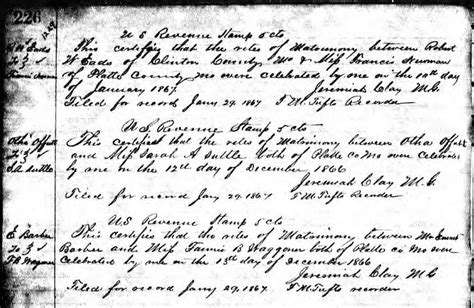 226
U S Revenue Stamp 5 cts
This certifies that the rites of Matrimony between Robert
W Eads of Clinton County Mo & Miss Francis Newman
of Platte County Mo were celebrated by me on the 10th day
of January 1867. Jeremiah Clay M.G.
Filed for record Jany 29. 1867 T M Tufts Recorder
U.S. Revenue Stamp 5 cts
Otha Offutt
To
S A Suttle
This Certifies that the rites of Matrimony between Otha Offutt
and Miss Sarah A Suttle both of Platte Co Mo were Celebrated
by me on the 12th day of December 1866
Jeremiah Clay M.G.
Filed for record Jany 29. 1867 T M Tufts Recorder
U.S Revenue Stamp 5 cts
E Barber
To
This Certifies that the rites of Matrimony between Mr
Barber and Miss Fannie B Waggoner both of Platte Co Mo were
Celebrated by me on the 13th day of December 1866
Jeremiah Clay M.G.
Filed for record Jany 29. 1867. T M Tufts recorder